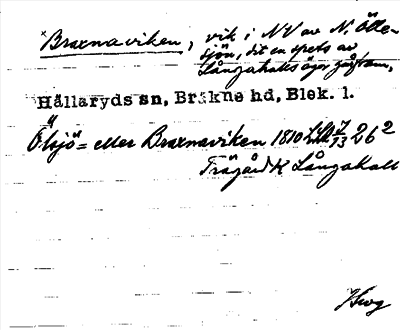 Braxnaviken, vik i NV av N. Ölle-
sjön, dit en spets av
Långahalls ägor går fram,
Hällaryds sn, Bräkne hd, Blek. l.
Ölsjö= eller Braxnaviken 1810 LSA 7/73 26²
Trägård K Långahall